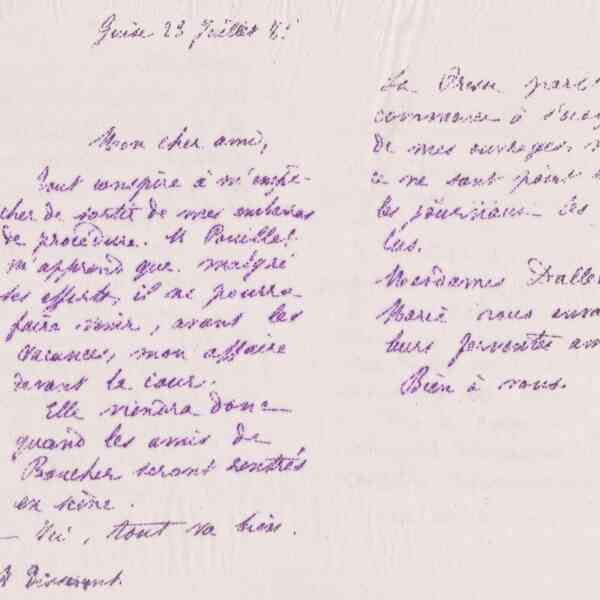 Guise 23 Juillet
Mon cher ami,
Tout conspire à m'empê-
cher de sortir de mes embarras
de procédure. M Pouillet
m'apprend que malgré
ses efforts, il ne pourra
faire venir, avant les
vacances, mon affaire
devant la cour.
Elle viendra donc
quand les amis de
Boucher seront rentrés
en scène.
— Ici, tout va bien.
La Presse parl
commence à s'occ
de mes ouvrages
ce ne sont point
les journaux les
lus.
Mesdames Dallet
Marie nous
leurs
Bien à vous.